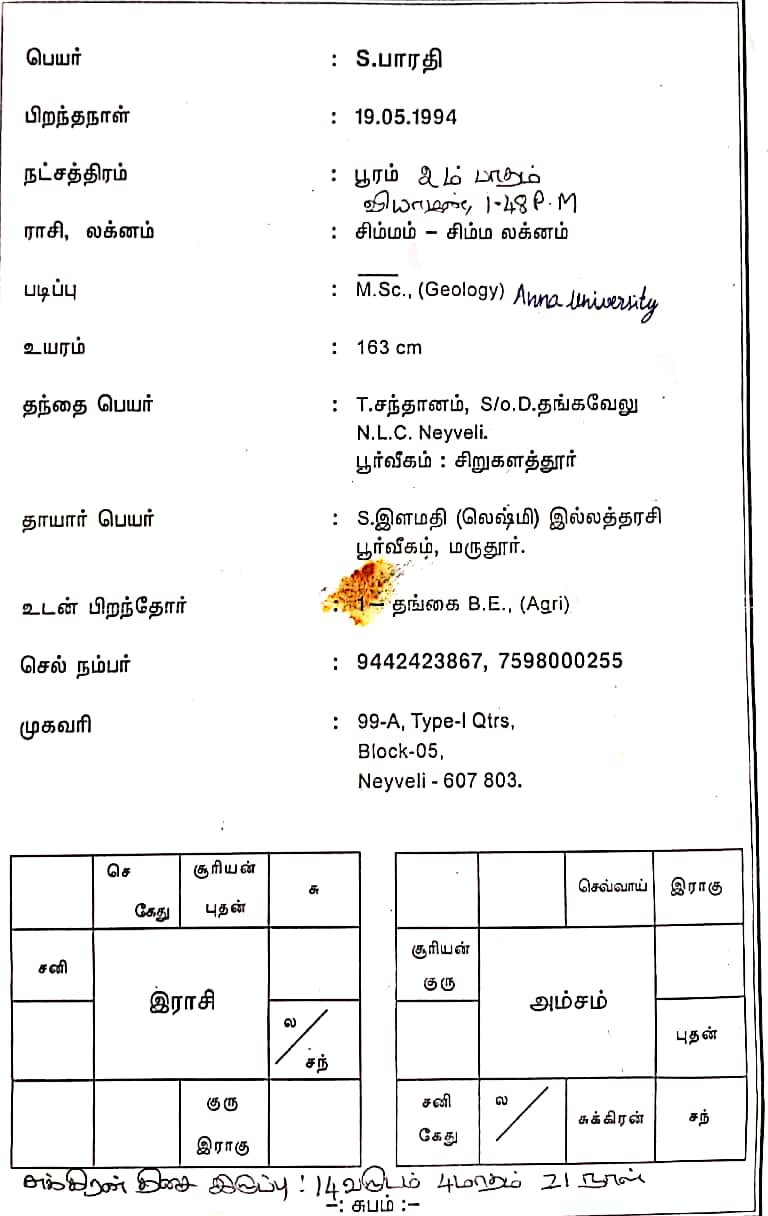 பெயர் : S.பாரதி
பிறந்தநாள் : 19.05.1994
நட்சத்திரம் : பூரம் 2ம் பாதம்
வியாழன், 1-48 P.M
ராசி, லக்னம் : சிம்மம் – சிம்ம லக்னம்
படிப்பு : M.Sc., (Geology) Anna University
உயரம் : 163 cm
தந்தை பெயர் : T.சந்தானம், S/o.D.தங்கவேலு
N.L.C. Neyveli.
பூர்வீகம் : சிறுகளத்தூர்
தாயார் பெயர் : S.இளமதி (லெஷ்மி) இல்லத்தரசி
பூர்வீகம், மருதூர்.
உடன் பிறந்தோர் : 1– தங்கை B.E., (Agri)
செல் நம்பர் : 9442423867, 7598000255
முகவரி : 99-A, Type-I Qtrs,
Block-05,
Neyveli - 607 803.
செ
கேது
சூரியன்
புதன்
சு
சனி
இராசி
ல
சந்
குரு
இராகு
செவ்வாய்
இராகு
சூரியன்
குரு
அம்சம்
புதன்
சனி
கேது
ல
சுக்கிரன்
சந்
சுக்கிரன் திசை இருப்பு : 14 வருடம் 4 மாதம் 21 நாள்
–: சுபம் :–